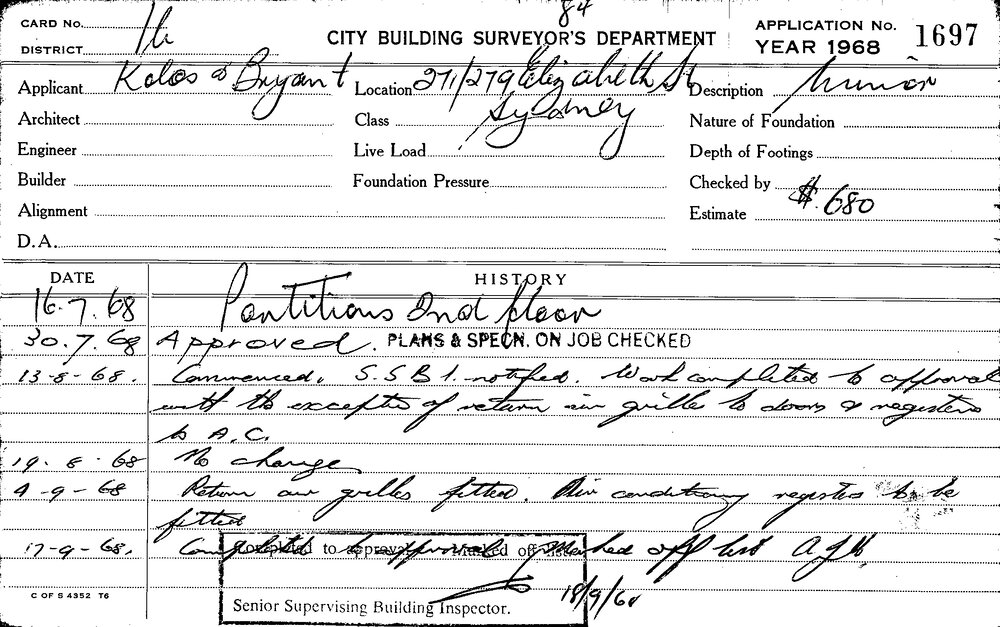 84
CARD No. 16
DISTRICT
CITY BUILDING SURVEYOR'S DEPARTMENT
APPLICATION No. 1697
YEAR 1968
Applicant Kolos & Bryant
Location 271/279 Elizabeth St
Description Minor
Architect
Class Sydney
Nature of Foundation
Engineer
Live Load
Depth of Footings
Builder
Foundation Pressure
Checked by
Alignment
Estimate $.680
D.A.
DATE HISTORY
16.7.68 Partitions 2nd floor
30.7.68 Approved. PLANS & SPECN. ON JOB CHECKED
13-8-68. Commenced. S.S.B.I. notified. Work completed to approval
with the exception of return air grilles to doors & registers
to A.C.
19.8.68 No change
4-9-68 Return air grilles fitted. Air conditioning registers to be
fitted
17-9-68. Completed to approval Marked off list
Completed to approval. Marked off
18/9/68
Senior Supervising Building Inspector.
C OF S 4352 T6